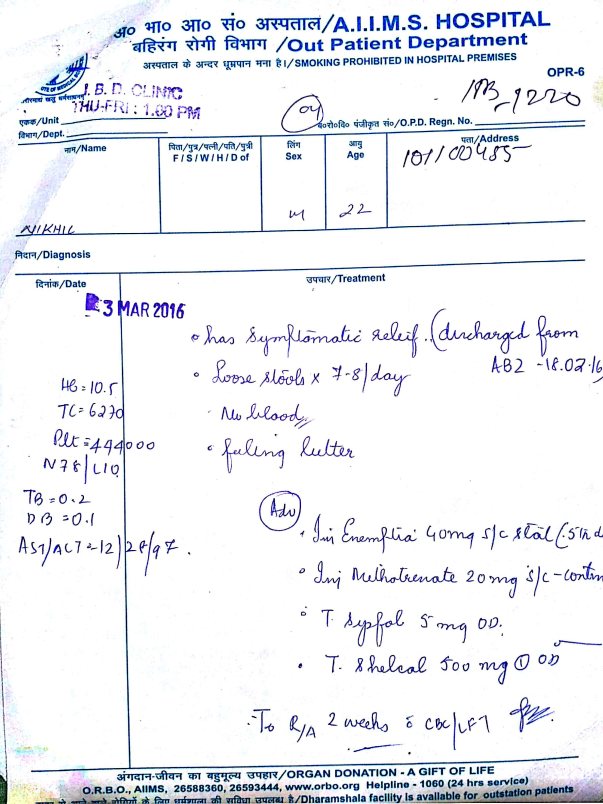 अ० भा० आ० सं० अस्पताल/A.I.I.M.S. HOSPITAL
बहिरंग रोगी विभाग /Out Patient Department
अस्पताल के अन्दर धूम्रपान मना है।/SMOKING PROHIBITED IN HOSPITAL PREMISES
OPR-6
I. B. D. CLINIC
THU-FRI : 1.00 PM
एकक/Unit
विभाग/Dept.
ब०रो०वि० पंजीकृत सं०/O.P.D. Regn. No.
1220
नाम/Name
पिता/पुत्र/पत्नी/पति/पुत्री
F / S / W / H / D of
लिंग
Sex
आयु
Age
पता/Address
101100485
NIKHIL
M
22
निदान/Diagnosis
दिनांक/Date
उपचार/Treatment
3 MAR 2016
has symptomatic releif.. (discharged from
AB2 -18.02.16
Loose stools x 7-8/day
No blood
feeling better
HB = 10.5
TC = 6270
Plt = 444000
N78/L10
TB = 0.2
DB = 0.1
AST/ALT = 12/28/97.
Adv
Inj Exemptia 40mg s/c stat (5th d
Inj Methotrexate 20mg s/c - contin
T. Sypfol 5 mg OD.
T. Shelcal 500 mg ① OD
To R/A 2 weeks c̄ CBC/LFT
अंगदान-जीवन का बहुमूल्य उपहार/ORGAN DONATION - A GIFT OF LIFE
O.R.B.O., AIIMS, 26588360, 26593444, www.orbo.org Helpline - 1060 (24 hrs service)
धर्मशाला की सुविधा उपलब्ध है/Dharamshala facility is available for outstation patients